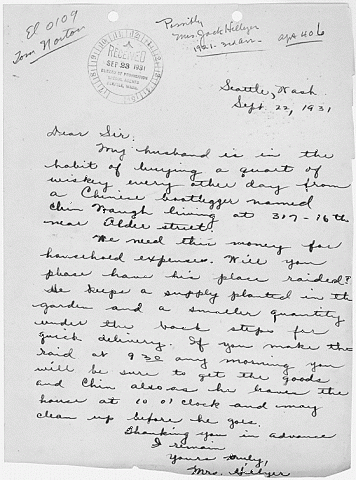 El 0109
Tom Norton
Possibly
Mrs Jack Hillyer
1921-3rd Ave. Apt 406
RECEIVED
SEP 23 1931
Seattle, Wash.
Sept. 22, 1931
Dear Sir:
My husband is in the
habit of buying a quart of
wiskey every other day from
a Chinese bootlegger named
Chin Waugh living at 317-16th
near Alder street.
We need this money for
household expenses. Will you
please have his place raided?
He keeps a supply planted in the
garden and a smaller quantity
under the back steps for
quick delivery. If you make the
raid at 9:30 any morning you
will be sure to get the goods
and Chin also as he leaves the
house at 10 o'clock and may
clean up before he goes.
Thanking you in advance
I remain
Yours truly,
Mrs. Hillyer